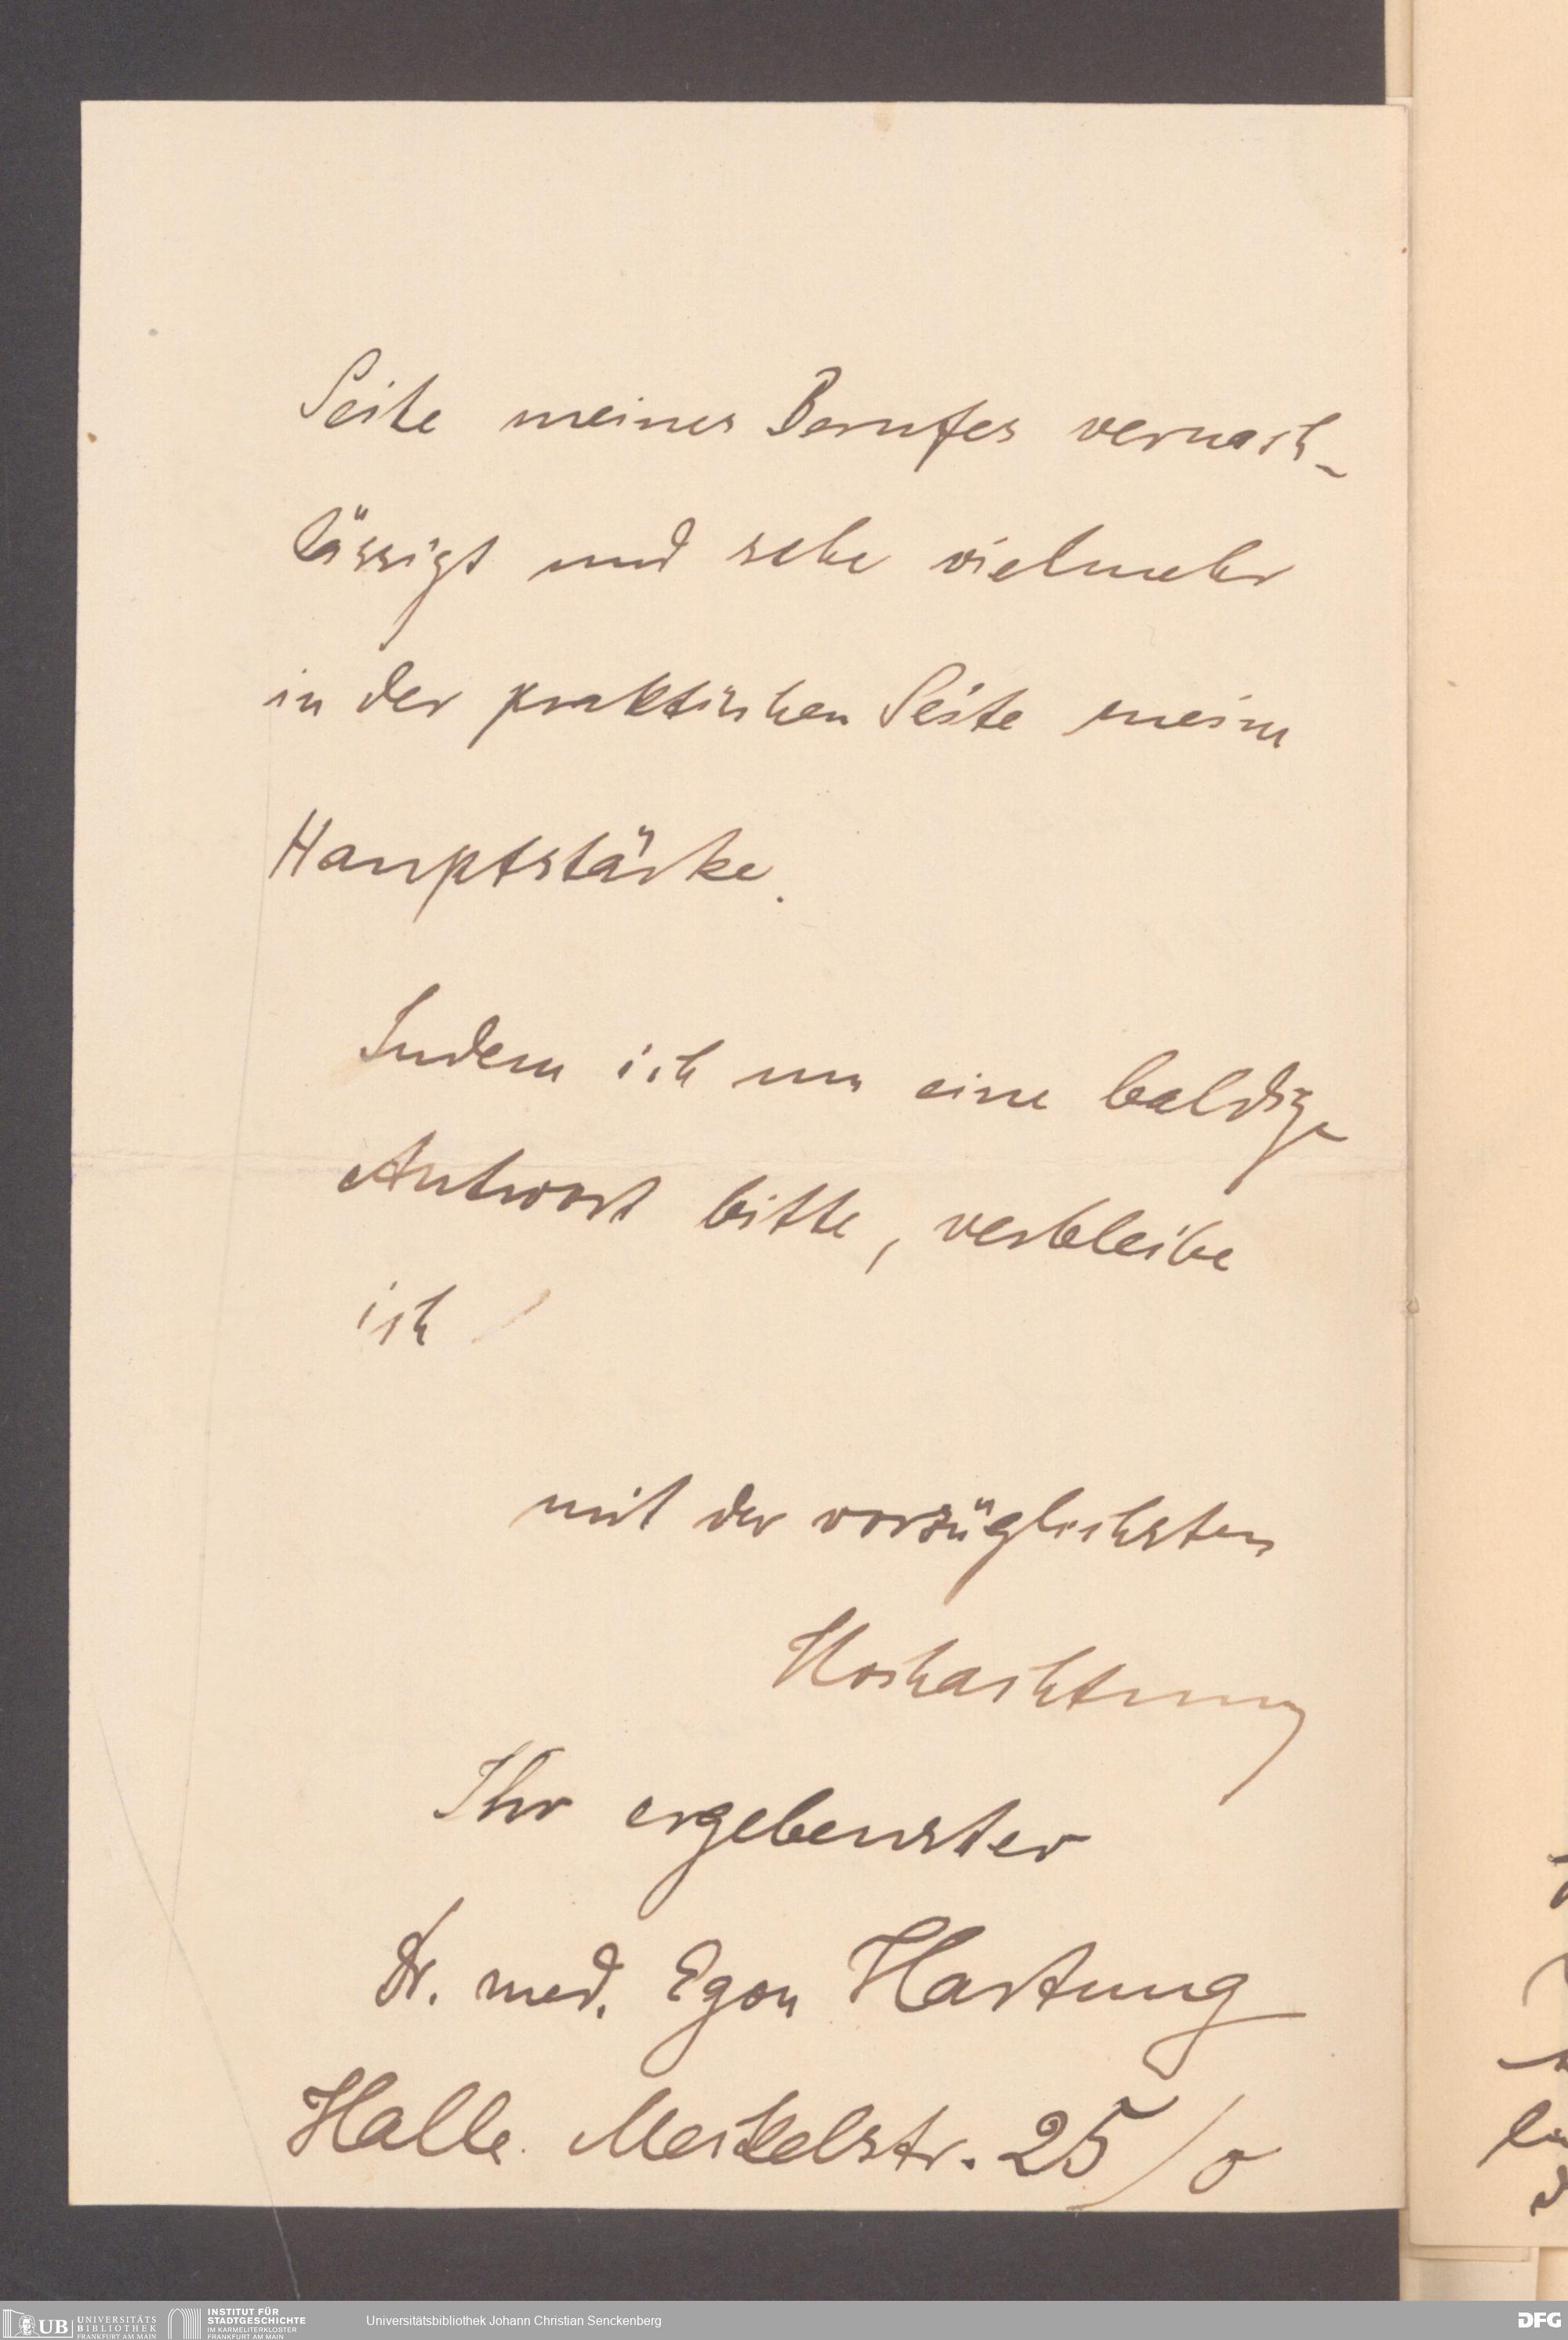 Seite meines Berufes vernach-
lässigt und sehe vielmehr
in der praktischen Seite meine
Hauptstärke.
Indem ich um eine baldige
Antwort bitte, verbleibe
ich
mit der vorzüglichsten
Hochachtung
Ihr ergebenster
Dr. med. Egon Hartung
Halle. Meckelstr. 25/0
UB UNIVERSITÄTS BIBLIOTHEK FRANKFURT AM MAIN
INSTITUT FÜR STADTGESCHICHTE IM KARMELITERKLOSTER FRANKFURT AM MAIN
Universitätsbibliothek Johann Christian Senckenberg
DFG